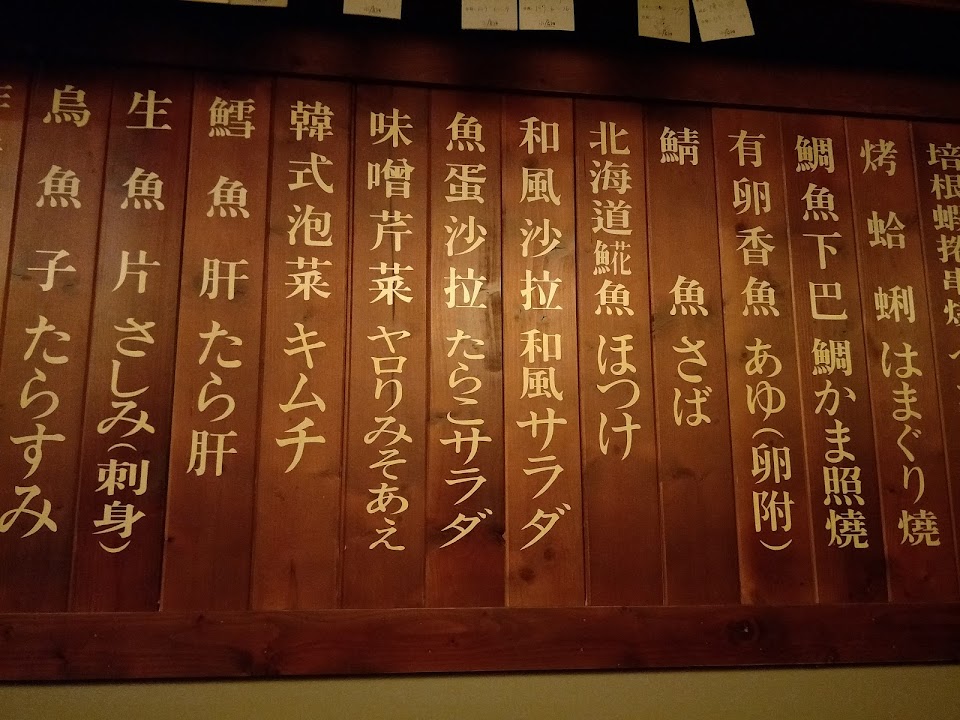 培根蝦捲串燒
烤蛤蜊 はまぐり燒
鯛魚下巴 鯛かま照燒
有卵香魚 あゆ(卵附)
鯖魚 さば
北海道𩸽魚 ほつけ
和風沙拉 和風サラダ
魚蛋沙拉 たらこサラダ
味噌芹菜 ヤロりみそあえ
韓式泡菜 キムチ
鱈魚肝 たら肝
生魚片 さしみ(刺身)
烏魚子 たらすみ